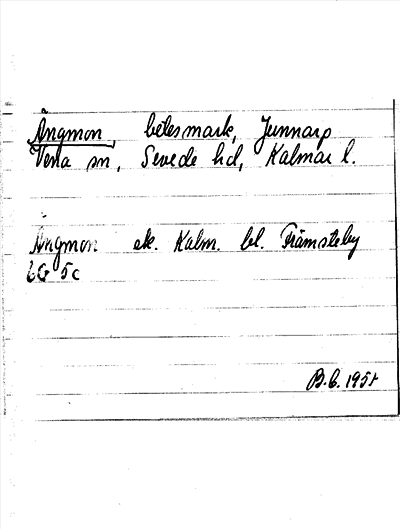 Ängmon, betesmark, Junnarp
Vena sn, Sevede hd, Kalmar l.
Ängmon ek. Kalm. bl. Främsteby
6G 5c
B.G. 1951